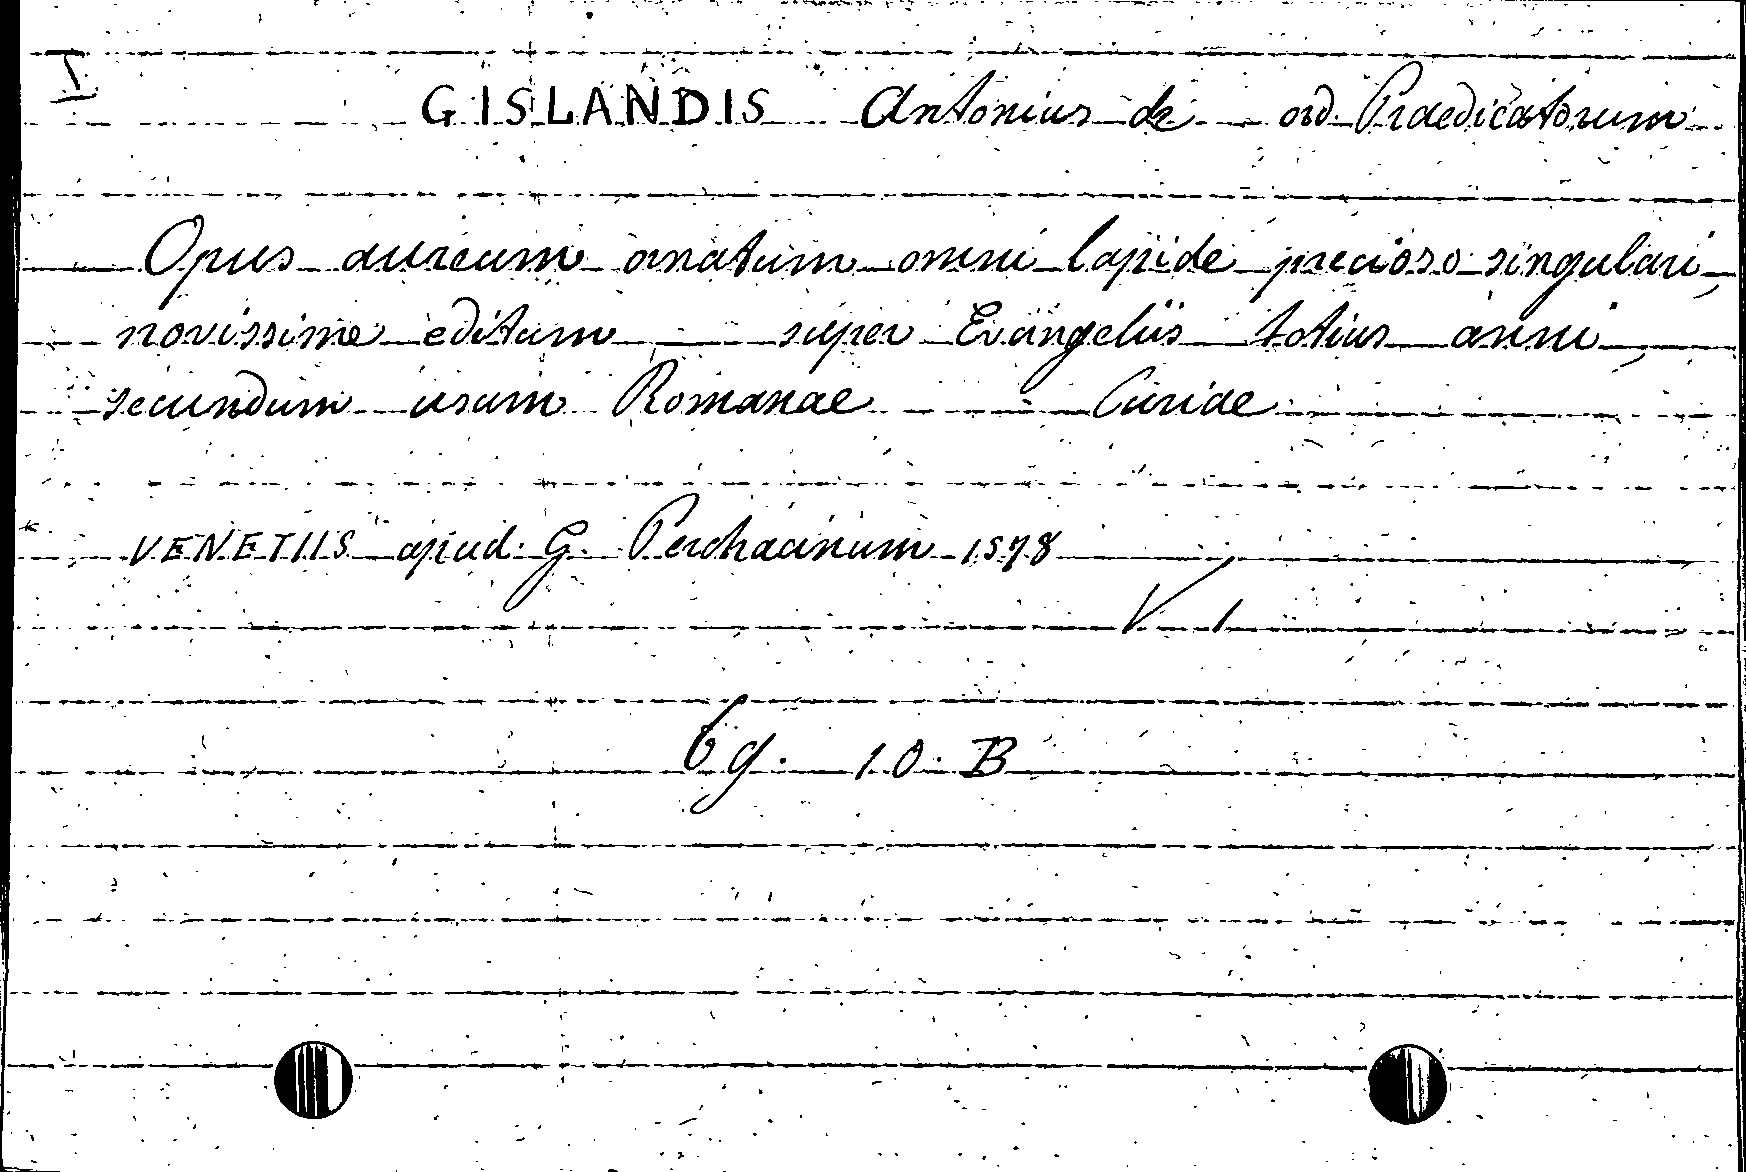 I
GISLANDIS Antonius de ord. Praedicatorum
Opus aureum ornatum omni lapide precioso singulari,
novissime editum super Evangeliis totius anni,
secundum usum Romanae Curiae
VENETIIS apud. G. Perchacinum 1578
V. 1
6g. 10. B